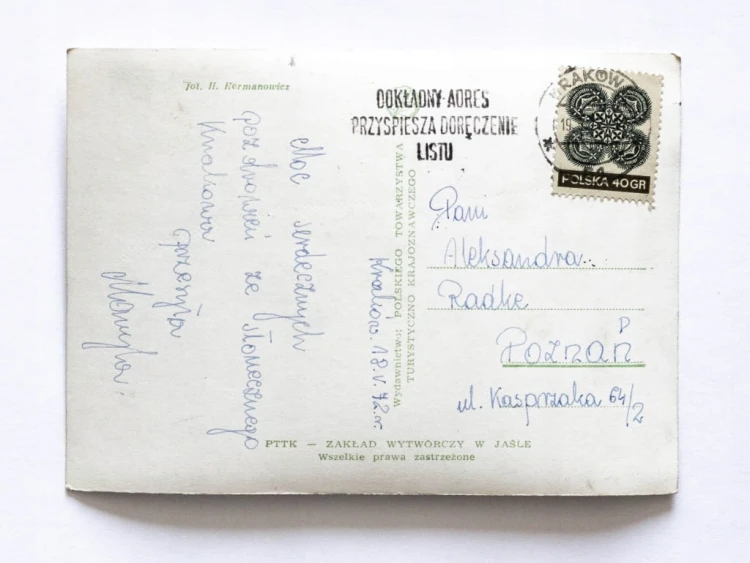 fot. H. Hermanowicz
DOKŁADNY ADRES
PRZYSPIESZA DORĘCZENIE
LISTU
KRAKÓW
19
POLSKA 40 GR
Moc serdecznych
pozdrowień ze słonecznego
Krakowa
przesyła
Kraków. 18.V.72r.
Wydawnictwo: POLSKIEGO TOWARZYSTWA
TURYSTYCZNO KRAJOZNAWCZEGO
Pani
Aleksandra
Radke
Poznań
ul. Kasprzaka 64/2
PTTK — ZAKŁAD WYTWÓRCZY W JAŚLE
Wszelkie prawa zastrzeżone